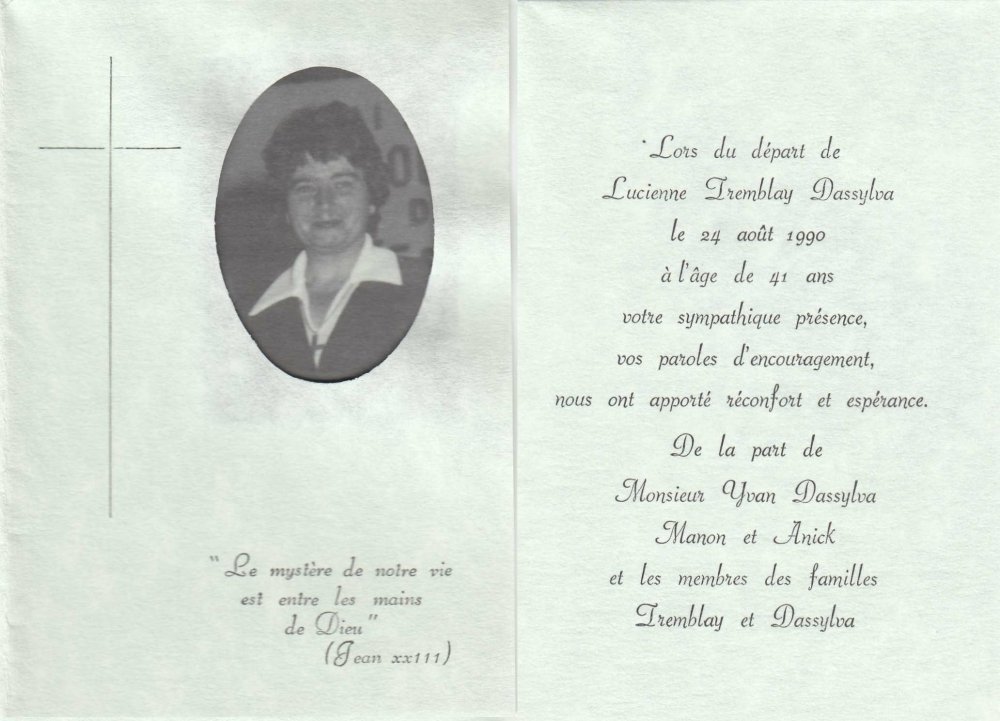 "Le mystère de notre vie
est entre les mains
de Dieu"
(Jean xx111)
Lors du départ de
Lucienne Tremblay Dassylva
le 24 août 1990
à l'âge de 41 ans
votre sympathique présence,
vos paroles d'encouragement,
nous ont apporté réconfort et espérance.
De la part de
Monsieur Yvan Dassylva
Manon et Anick
et les membres des familles
Tremblay et Dassylva